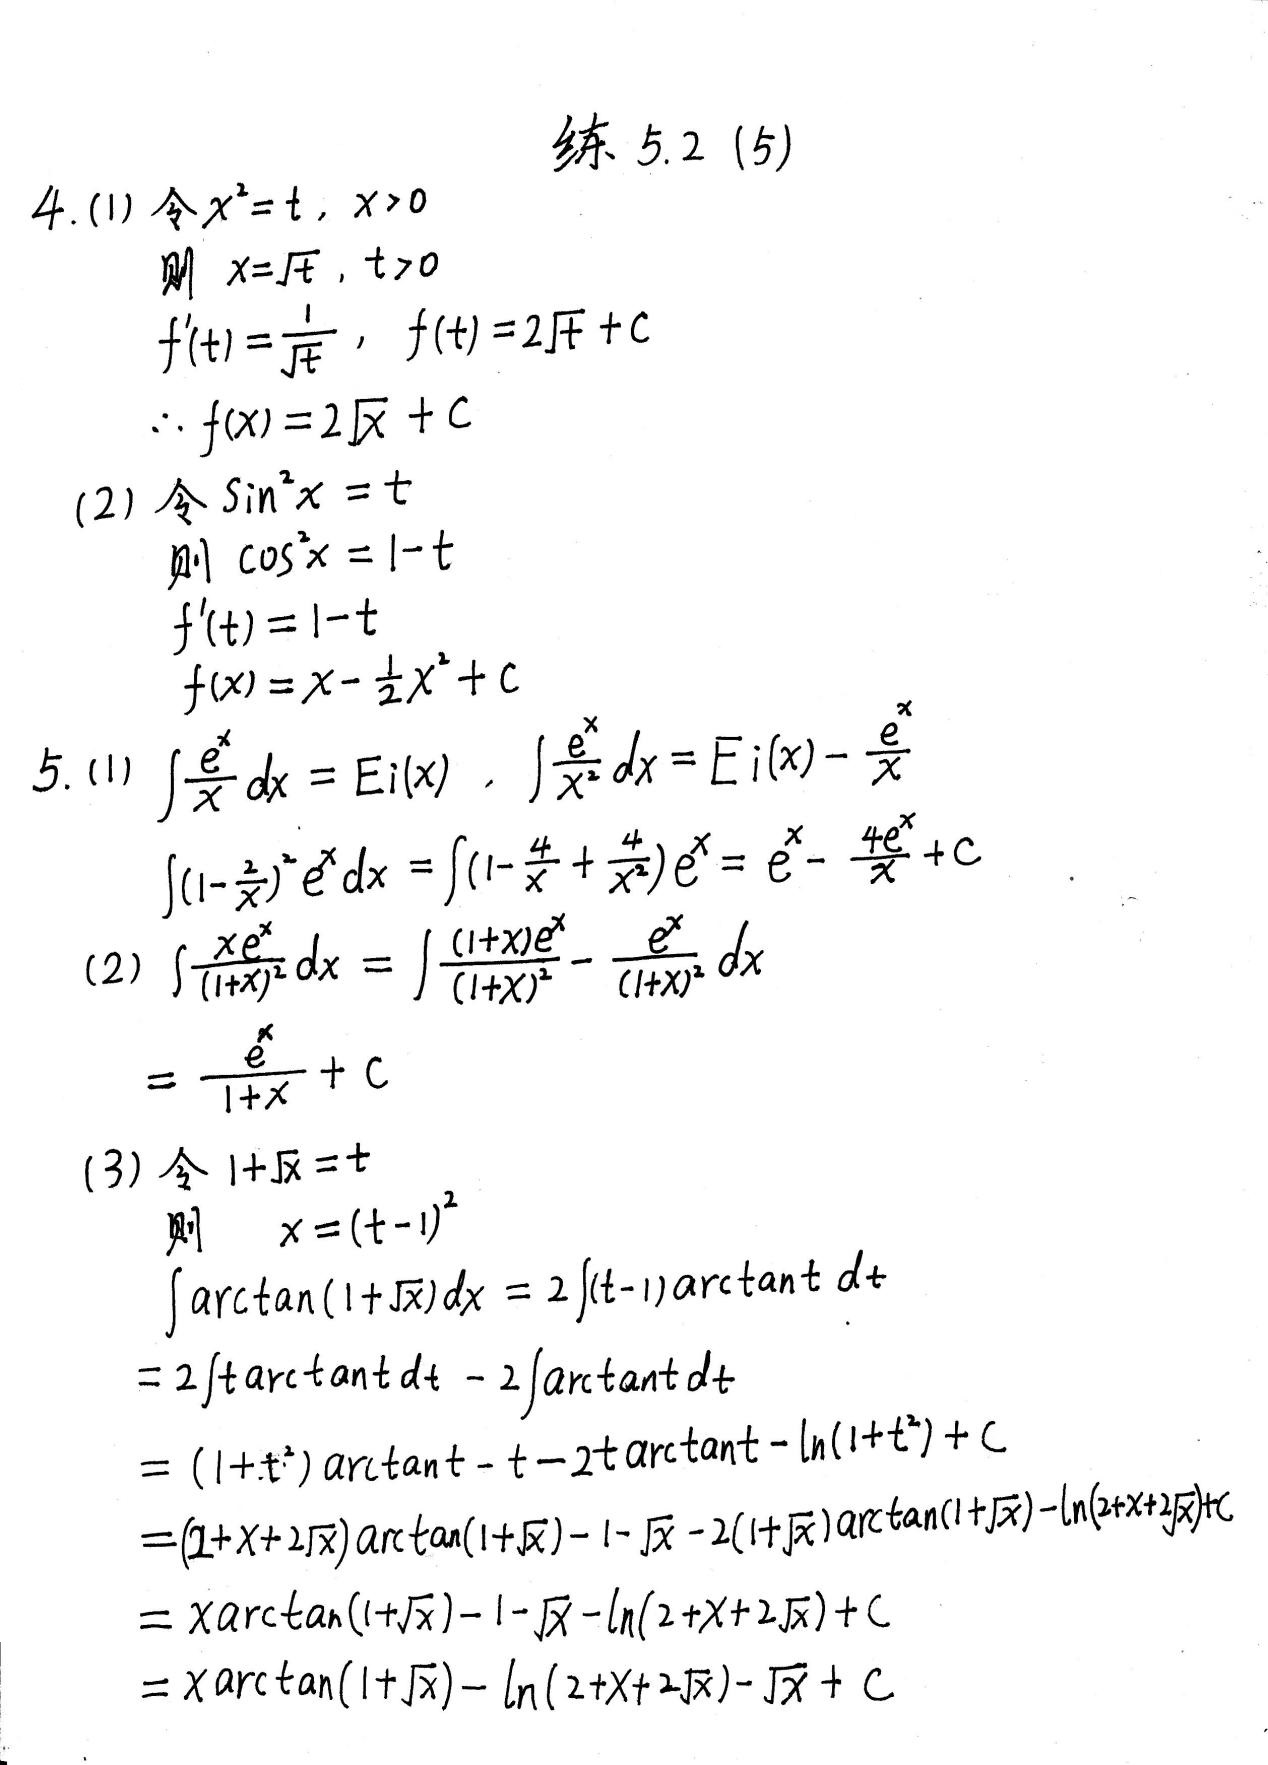 练 5.2 (5)
4.(1) 令 x²=t, x>0
则 x=√t, t>0
f'(t)=1/√t, f(t)=2√t+C
∴ f(x)=2√x+C
(2) 令 sin²x=t
则 cos²x=1-t
f'(t)=1-t
f(x)=x-½x²+C
5.(1) ∫e^x/x dx=Ei(x), ∫e^x/x² dx=Ei(x)-e^x/x
∫(1-2/x)²e^x dx=∫(1-4/x+4/x²)e^x=e^x-4e^x/x+C
(2) ∫xe^x/(1+x)² dx=∫(1+x)e^x/(1+x)²-e^x/(1+x)² dx
=e^x/(1+x)+C
(3) 令 1+√x=t
则 x=(t-1)²
∫arctan(1+√x)dx=2∫(t-1)arctant dt
=2∫tarctantdt-2∫arctantdt
=(1+t²)arctant-t-2tarctant-ln(1+t²)+C
=(2+x+2√x)arctan(1+√x)-1-√x-2(1+√x)arctan(1+√x)-ln(2+x+2√x)+C
=xarctan(1+√x)-1-√x-ln(2+x+2√x)+C
=xarctan(1+√x)-ln(2+x+2√x)-√x+C